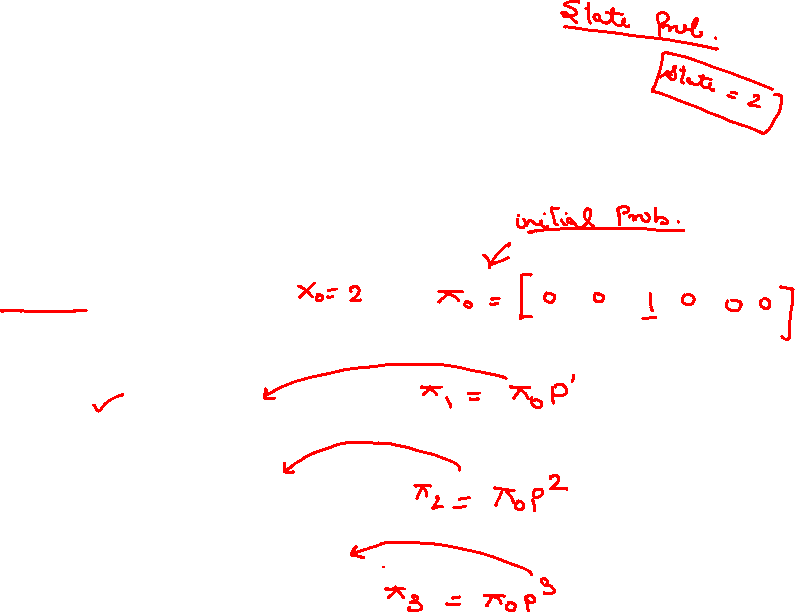 State Prob.
State = 2
initial Prob.
X₀ = 2 π₀ = [ 0 0 1 0 0 0 ]
π₁ = π₀ P¹
π₂ = π₀ P²
π₃ = π₀ P³